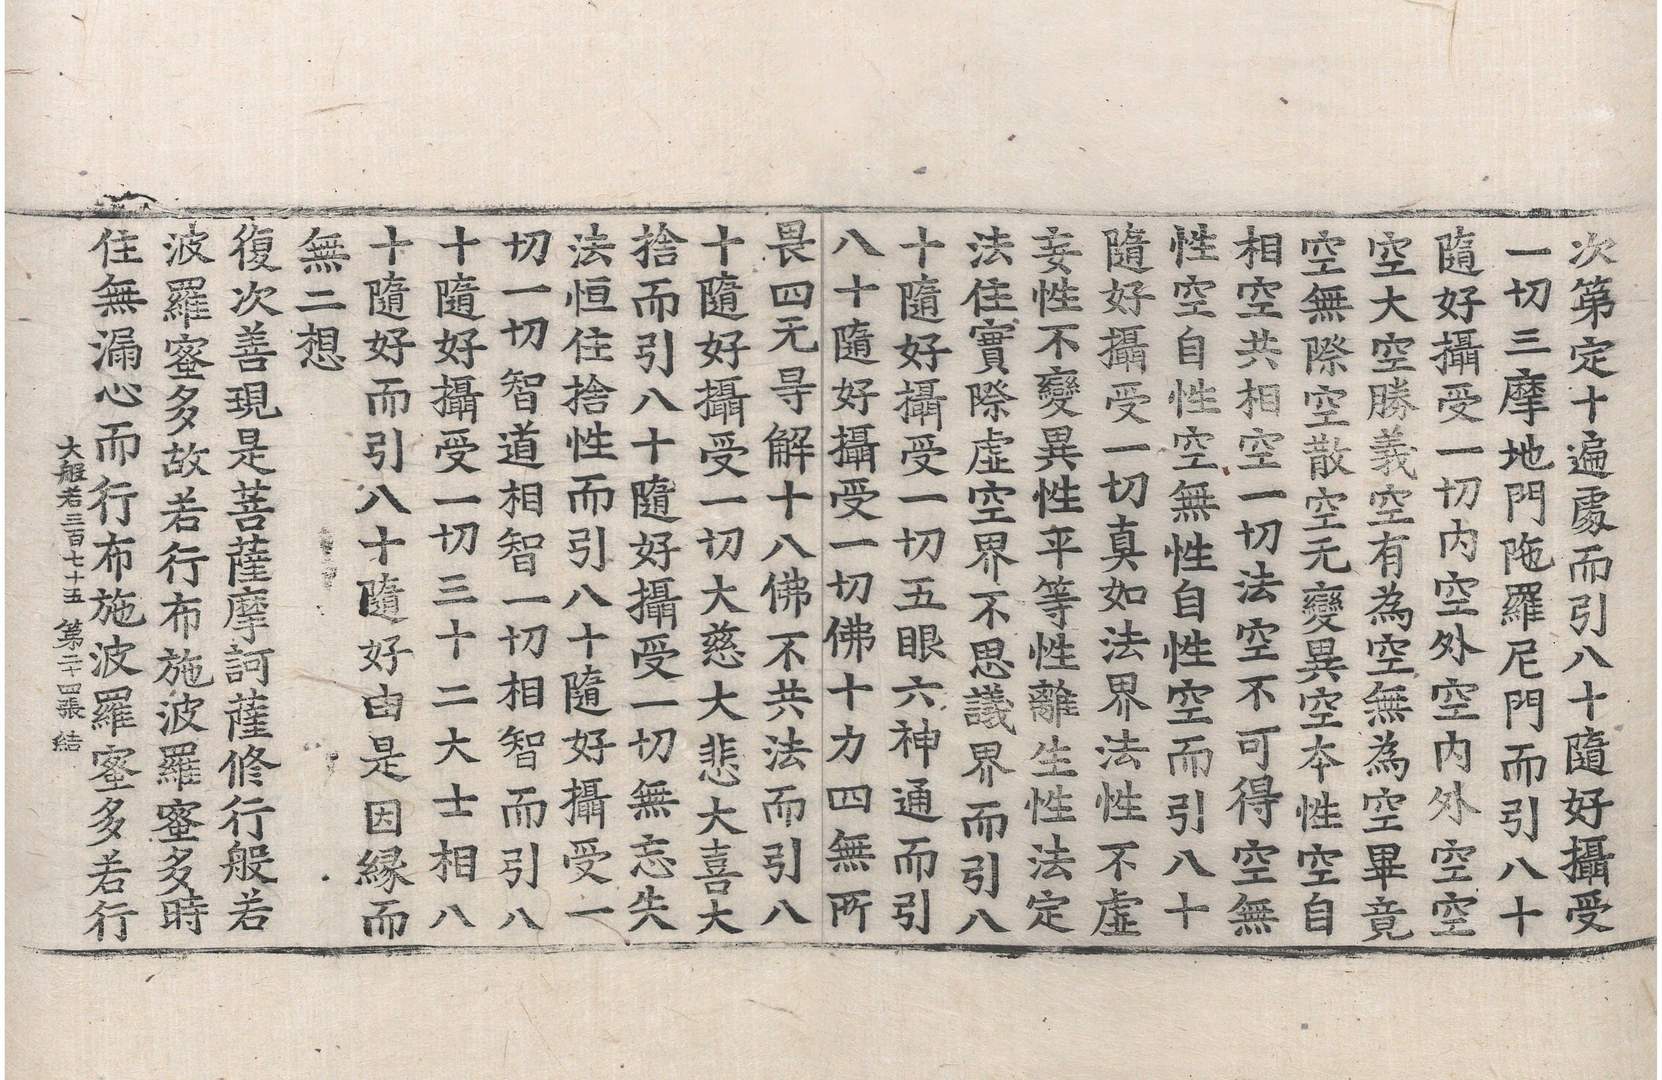 次第定十遍處而引八十隨好攝受
一切三摩地門陁羅尼門而引八十
隨好攝受一切內空外空內外空空
空大空勝義空有為空無為空畢竟
空無際空散空无變異空本性空自
相空共相空一切法空不可得空無
性空自性空無性自性空而引八十
隨好攝受一切真如法界法性不虛
妄性不變異性平等性離生性法定
法住實際虛空界不思議界而引八
十隨好攝受一切五眼六神通而引
八十隨好攝受一切佛十力四無所
畏四无㝵解十八佛不共法而引八
十隨好攝受一切大慈大悲大喜大
捨而引八十隨好攝受一切無忘失
法恒住捨性而引八十隨好攝受一
切一切智道相智一切相智而引八
十隨好攝受一切三十二大士相八
十隨好而引八十隨好由是因縁而
無二想
復次善現是菩薩摩訶薩修行般若
波羅蜜多故若行布施波羅蜜多時
住無漏心而行布施波羅蜜多若行
大般若三百七十五 第二十四張 結